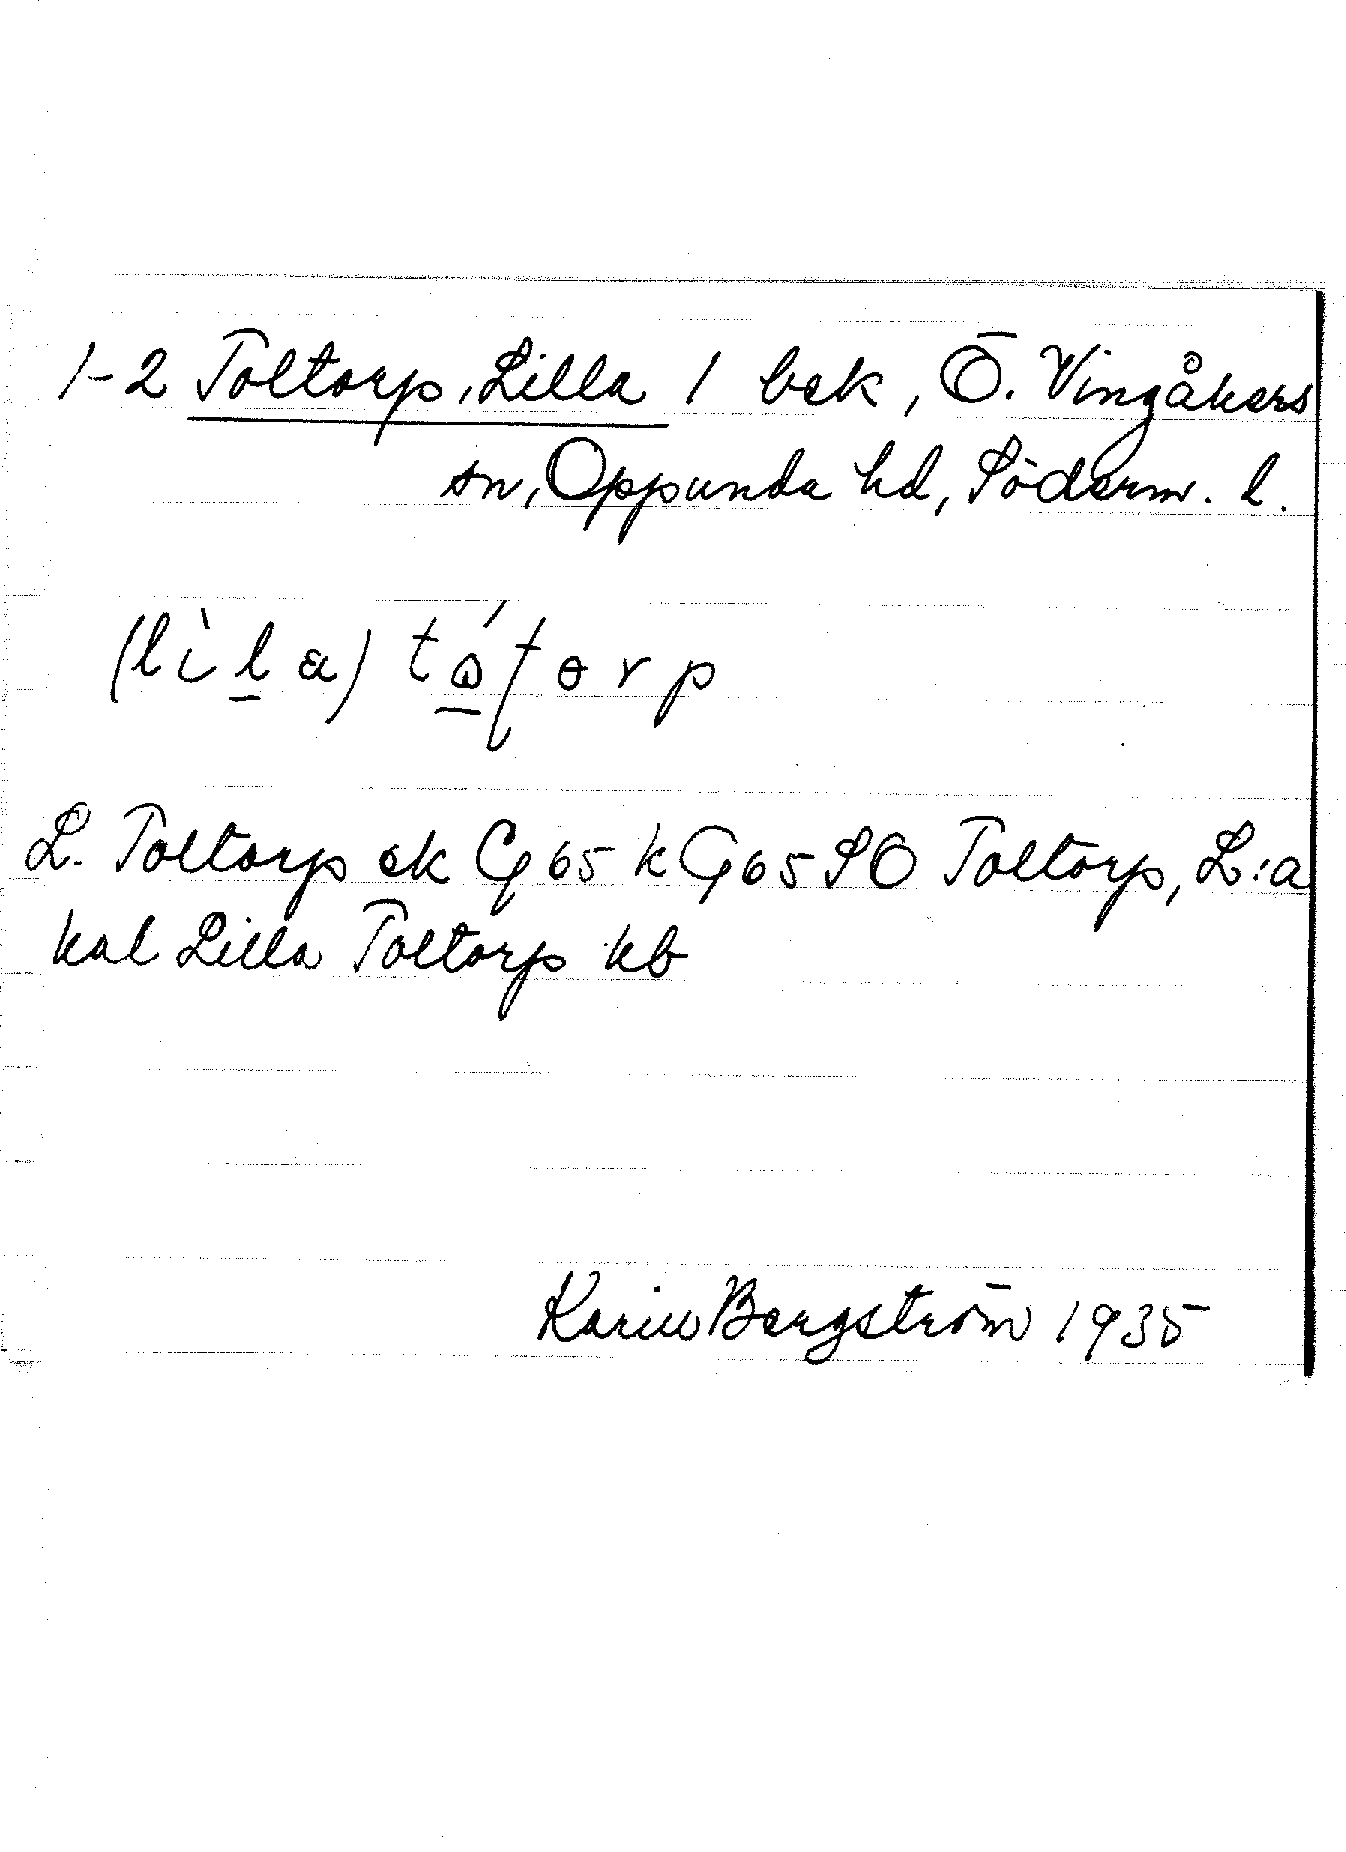 1-2 Toltorp, Lilla 1 bek, Ö. Vingåkers
sn, Oppunda hd, Söderm. l.
(lìla) tåtorp
L. Toltorp ek G65 k G65 SO Toltorp, L:a
kal Lilla Toltorp kb
Karin Bergström 1935